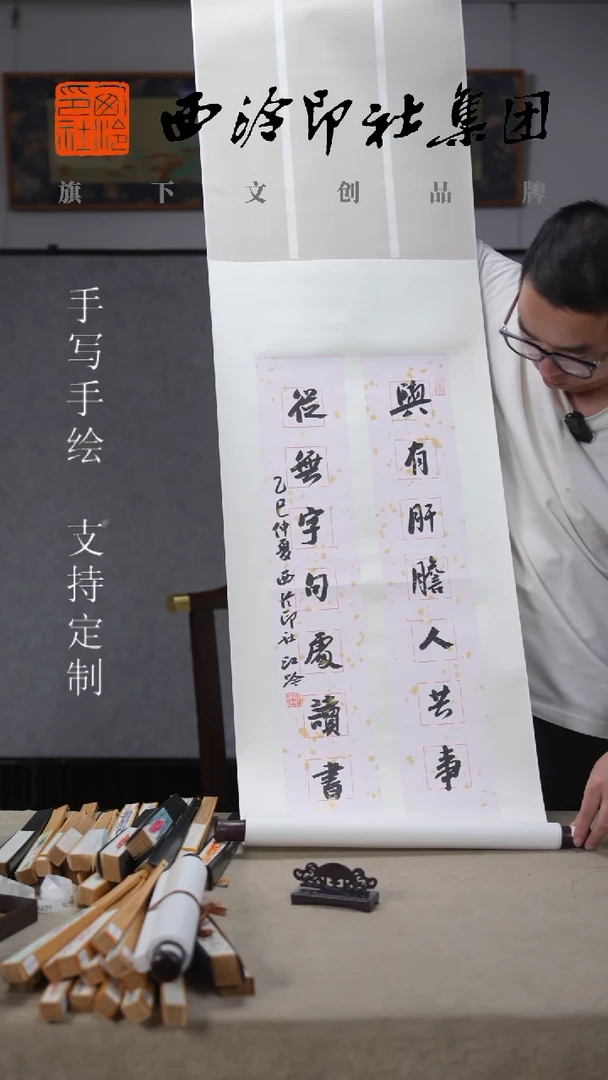 西泠印社集团
旗下文创品牌
手写手绘 支持定制
與有肝膽人共事
從無字句處讀書
乙巳仲夏西泠印社江吟